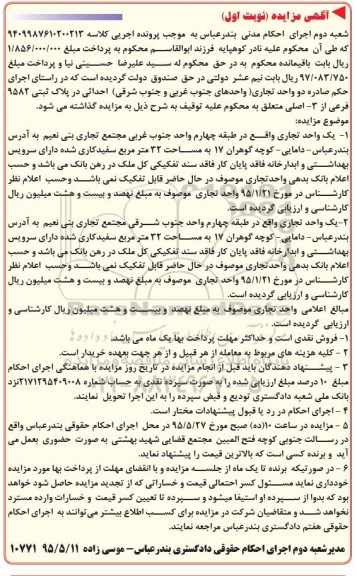 آگهی مزایده (نوبت اول)
شعبه دوم اجرای احکام مدنی بندرعباس به موجب پرونده اجرایی کلاسه 9409987610200213
که طی آن محکوم علیه نادر کوهپایه فرزند ابوالقاسم محکوم به پرداخت مبلغ 1/856/000/000
ریال بابت باقیمانده محکوم به در حق محکوم له سید علیرضا حسینی نیا و پرداخت مبلغ
97/083/750 ریال بابت نیم عشر دولتی در حق صندوق دولت گردیده است که در راستای اجرای
حکم صادره دو واحد تجاری( واحدهای جنوب غربی و جنوب شرقی) احداثی در پلاک ثبتی 9582
فرعی از 3- اصلی متعلق به محکوم علیه توقیف به شرح ذیل به مزایده گذاشته می شود.
موضوع مزایده:
1- یک واحد تجاری واقع در طبقه چهارم واحد جنوب غربی مجتمع تجاری بنی نعیم به آدرس
بندرعباس- دامایی- کوچه گوهران 17 به مساحت 32 متر مربع سفیدکاری شده دارای سرویس
بهداشتی و ابدارخانه فاقد پایان کار فاقد سند تفکیکی کل ملک در رهن بانک می باشد و حسب
اعلام بانک بدهی واحدتجاری موصوف در حال حاضر قابل تفکیک نمی باشد وحسب اعلام نظر
کارشناس در مورخ 95/1/21 واحد تجاری موصوف به مبلغ نهصد و بیست و هشت میلیون ریال
کارشناسی و ارزیابی گردیده است.
2-یک واحد تجاری واقع در طبقه چهارم واحد جنوب شرقی مجتمع تجاری بنی نعیم به آدرس
بندرعباس- دامایی- کوچه گوهران 17 به مساحت 32 متر مربع سفیدکاری شده دارای سرویس
بهداشتی و ابدارخانه فاقد پایان کار فاقد سند تفکیکی کل ملک در رهن بانک می باشد و حسب
اعلام بانک بدهی واحدتجاری موصوف در حال حاضر قابل تفکیک نمی باشد وحسب اعلام نظر
کارشناس در مورخ 95/1/21 واحد تجاری موصوف به مبلغ نهصد و بیست و هشت میلیون ریال
کارشناسی و ارزیابی گردیده است.
مبالغ اعلامی واحد تجاری موصوف به مبلغ نهصد و بیست و هشت میلیون ریال کارشناسی و
ارزیابی گردیده است.
1- فروش نقدی است و حداکثر مهلت پرداخت بها یک ماه می باشد.
2- کلیه هزینه های مربوط به معامله از هر قبیل و از هر جهت بعهده خریدار است.
3- پیشنهاد دهندگان باید قبل از انجام مزایده در تاریخ روز مزایده با هماهنگی اجرای احکام
مبلغ 10 درصد مبلغ ارزیابی شده را به صورت سپرده نقدی به حساب شماره 2171295409008نزد
بانک ملی شعبه دادگستری تودیع و قبض سپرده را به این اجرا تحویل نمایند.
4- اجرای احکام در رد یا قبول پیشنهادات مختار است.
5- مزایده در ساعت 10(ده) صبح مورخ 95/5/27 در محل اجرای احکام حقوقی بندرعباس واقع
در رسالت جنوبی کوچه فتح المبین مجتمع قضائی شهید بهشتی به صورت حضوری بعمل می
آید و برنده کسی است که بالاترین قیمت را پیشنهاد نماید.
6- در صورتیکه برنده تا یک ماه از جلسه مزایده و با انقضای مهلت از پرداخت بها مورد مزایده
خودداری نماید مسئول کسر احتمالی قیمت و خساراتی که از تجدید مزایده حاصل شود خواهد
بود که بدوا از سپرده او استیفا میشود و سپرده تا تعیین کسر قیمت و خسارات وارده مسترد
نخواهد شد و متقاضیان شرکت در مزایده برای کسب اطلاع بیشتر می‌توانند به اجرای احکام
حقوقی هفتم دادگستری بندرعباس مراجعه نمایند.
مدیرشعبه دوم اجرای احکام حقوقی دادگستری بندرعباس- موسی زاده 95/5/11 10771